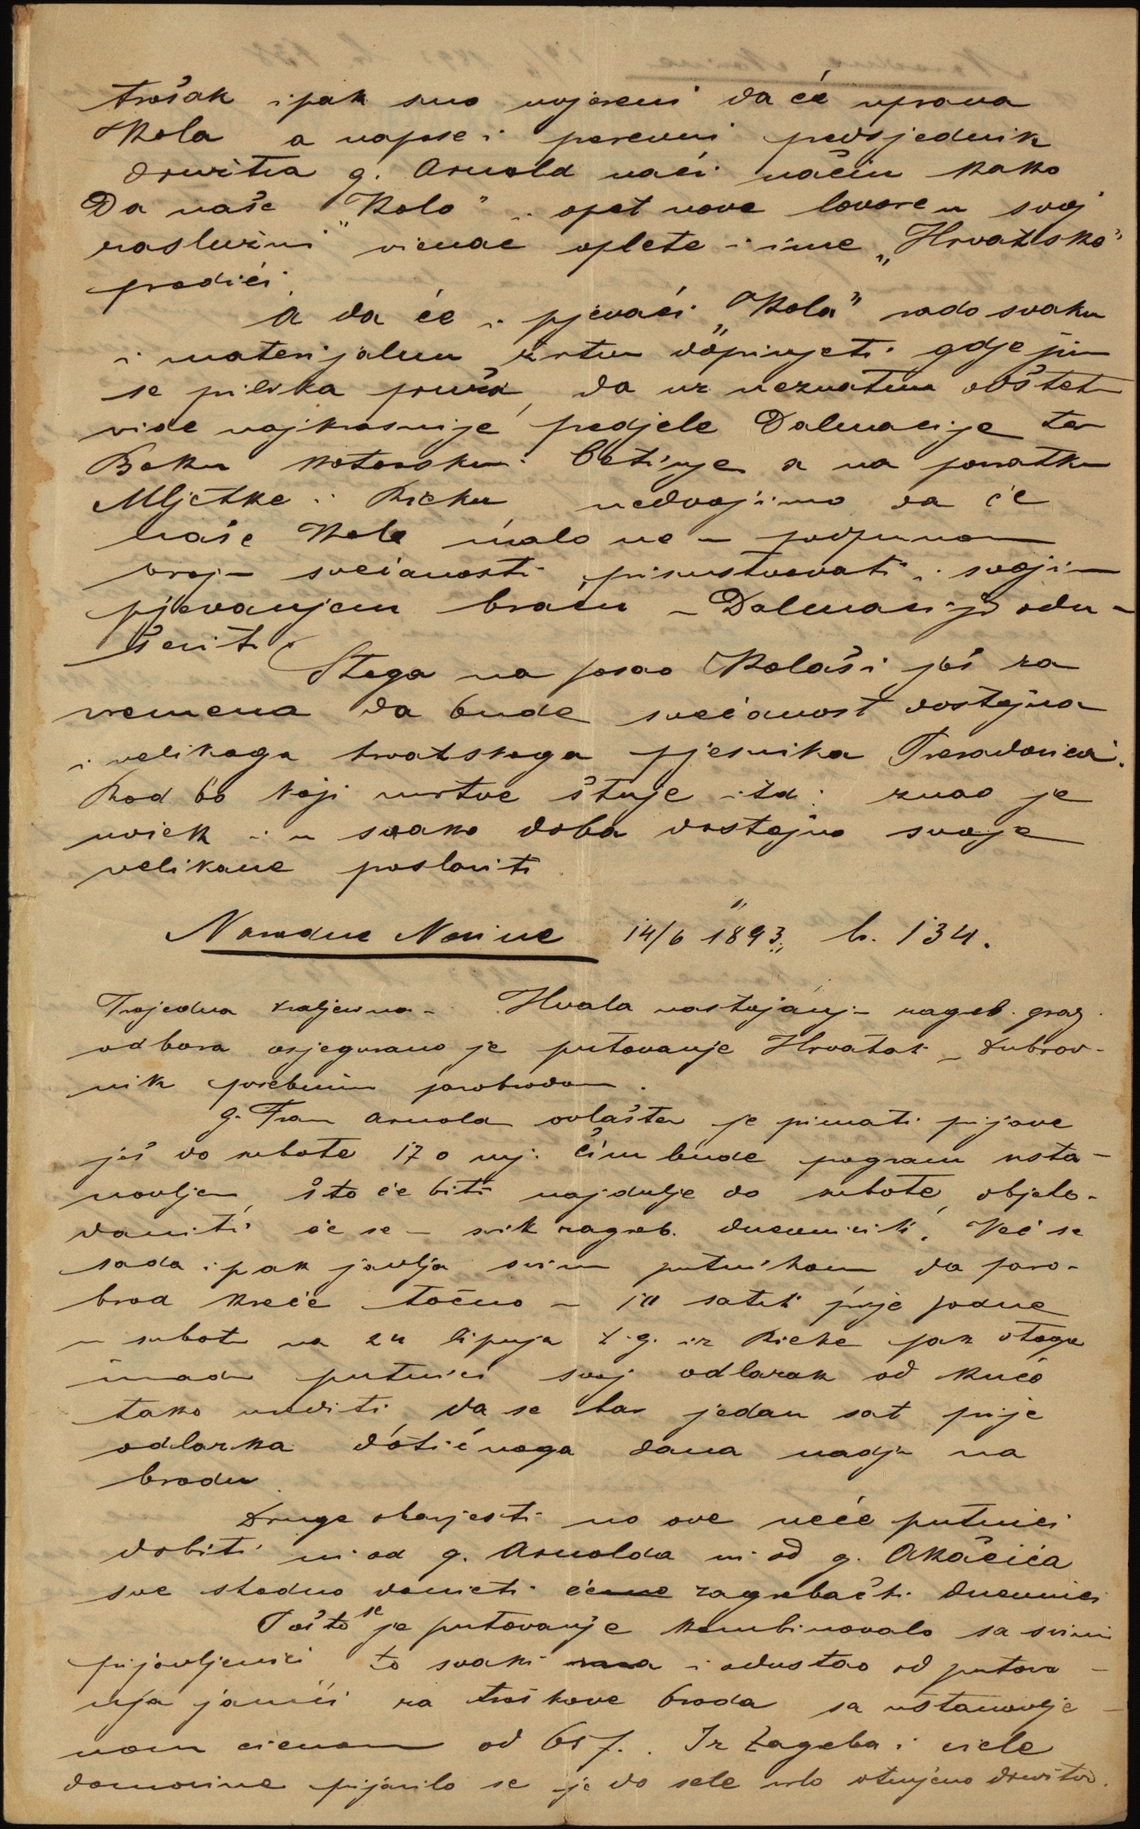 trošak ipak smo uvjereni da će uprava
Kola a napose i poreveni predsjednik
družtva g. Arnold naći način kako
Da naše "Kolo" i opet nove lovore u svoj
zaslužni vienac oplete i ime „Hrvatsko"
pradiči.
A da će i pjevači „Kola" rado svaku
i materijalnu žrtvu doprinjeti gdje jim
se prilika pruža, da uz neznatnu obštet
vide najkrasnije predjele Dalmacije te
Boku kotorsku i Cetinje a na povratku
Mljetke i Rieku nedvojimo da će
naše Kolo malo ne u podpunom
broju svečanosti prisustvovati i svojim
pjevanjem braću u Dalmaciji odu-
ševiti.
Stoga na posao Kolaši još za
vremena da bude svečanost dostojna
i velikoga hrvatskoga pjesnika Preradovića.
Rod bo koji mrtve štuje itd. znao je
uviek i u svako doba dostojno svoje
velikane proslaviti.
Narodne Novine 14/6 1893. br. 134.
Trojedna kraljevina – Hvala nastojanju zagreb. gradj.
odbora osjegurano je putovanje Hrvatah u Dubrov-
nik posebnim parobrodom.
g. Fran Arnold ovlašten je primati prijave
još do subote 17 o. mj. Čim bude program usta-
novljen, što će biti najdulje do subote, objelo-
daniti će se u svih zagreb. dnevnicih. Već se
sada ipak javlja svim putnikom da paro-
brod kreće točno u 10 satih prije podne
u subotu na 24 lipnja t. g. iz Rieke pak stoga
imadu putnici svoj odlazak od kuće
tako urediti da se bar jedan sat prije
odlazka dotičnoga dana nadju na
brodu.
Druge obavjesti no ove neće putnici
dobiti ni od g. Arnolda ni od g. Akačića
sve shodno donieti će zagrebački dnevnici
Pošto se je putovanje kombinovalo sa svimi
prijavljenici to svaki i odustao od putova-
nja jamči za troškove broda sa ustanovlje-
nom cienom od 65 f. Iz Zagreba i ciele
domovine prijavilo se je do sele vrlo otmjeno družtvo.